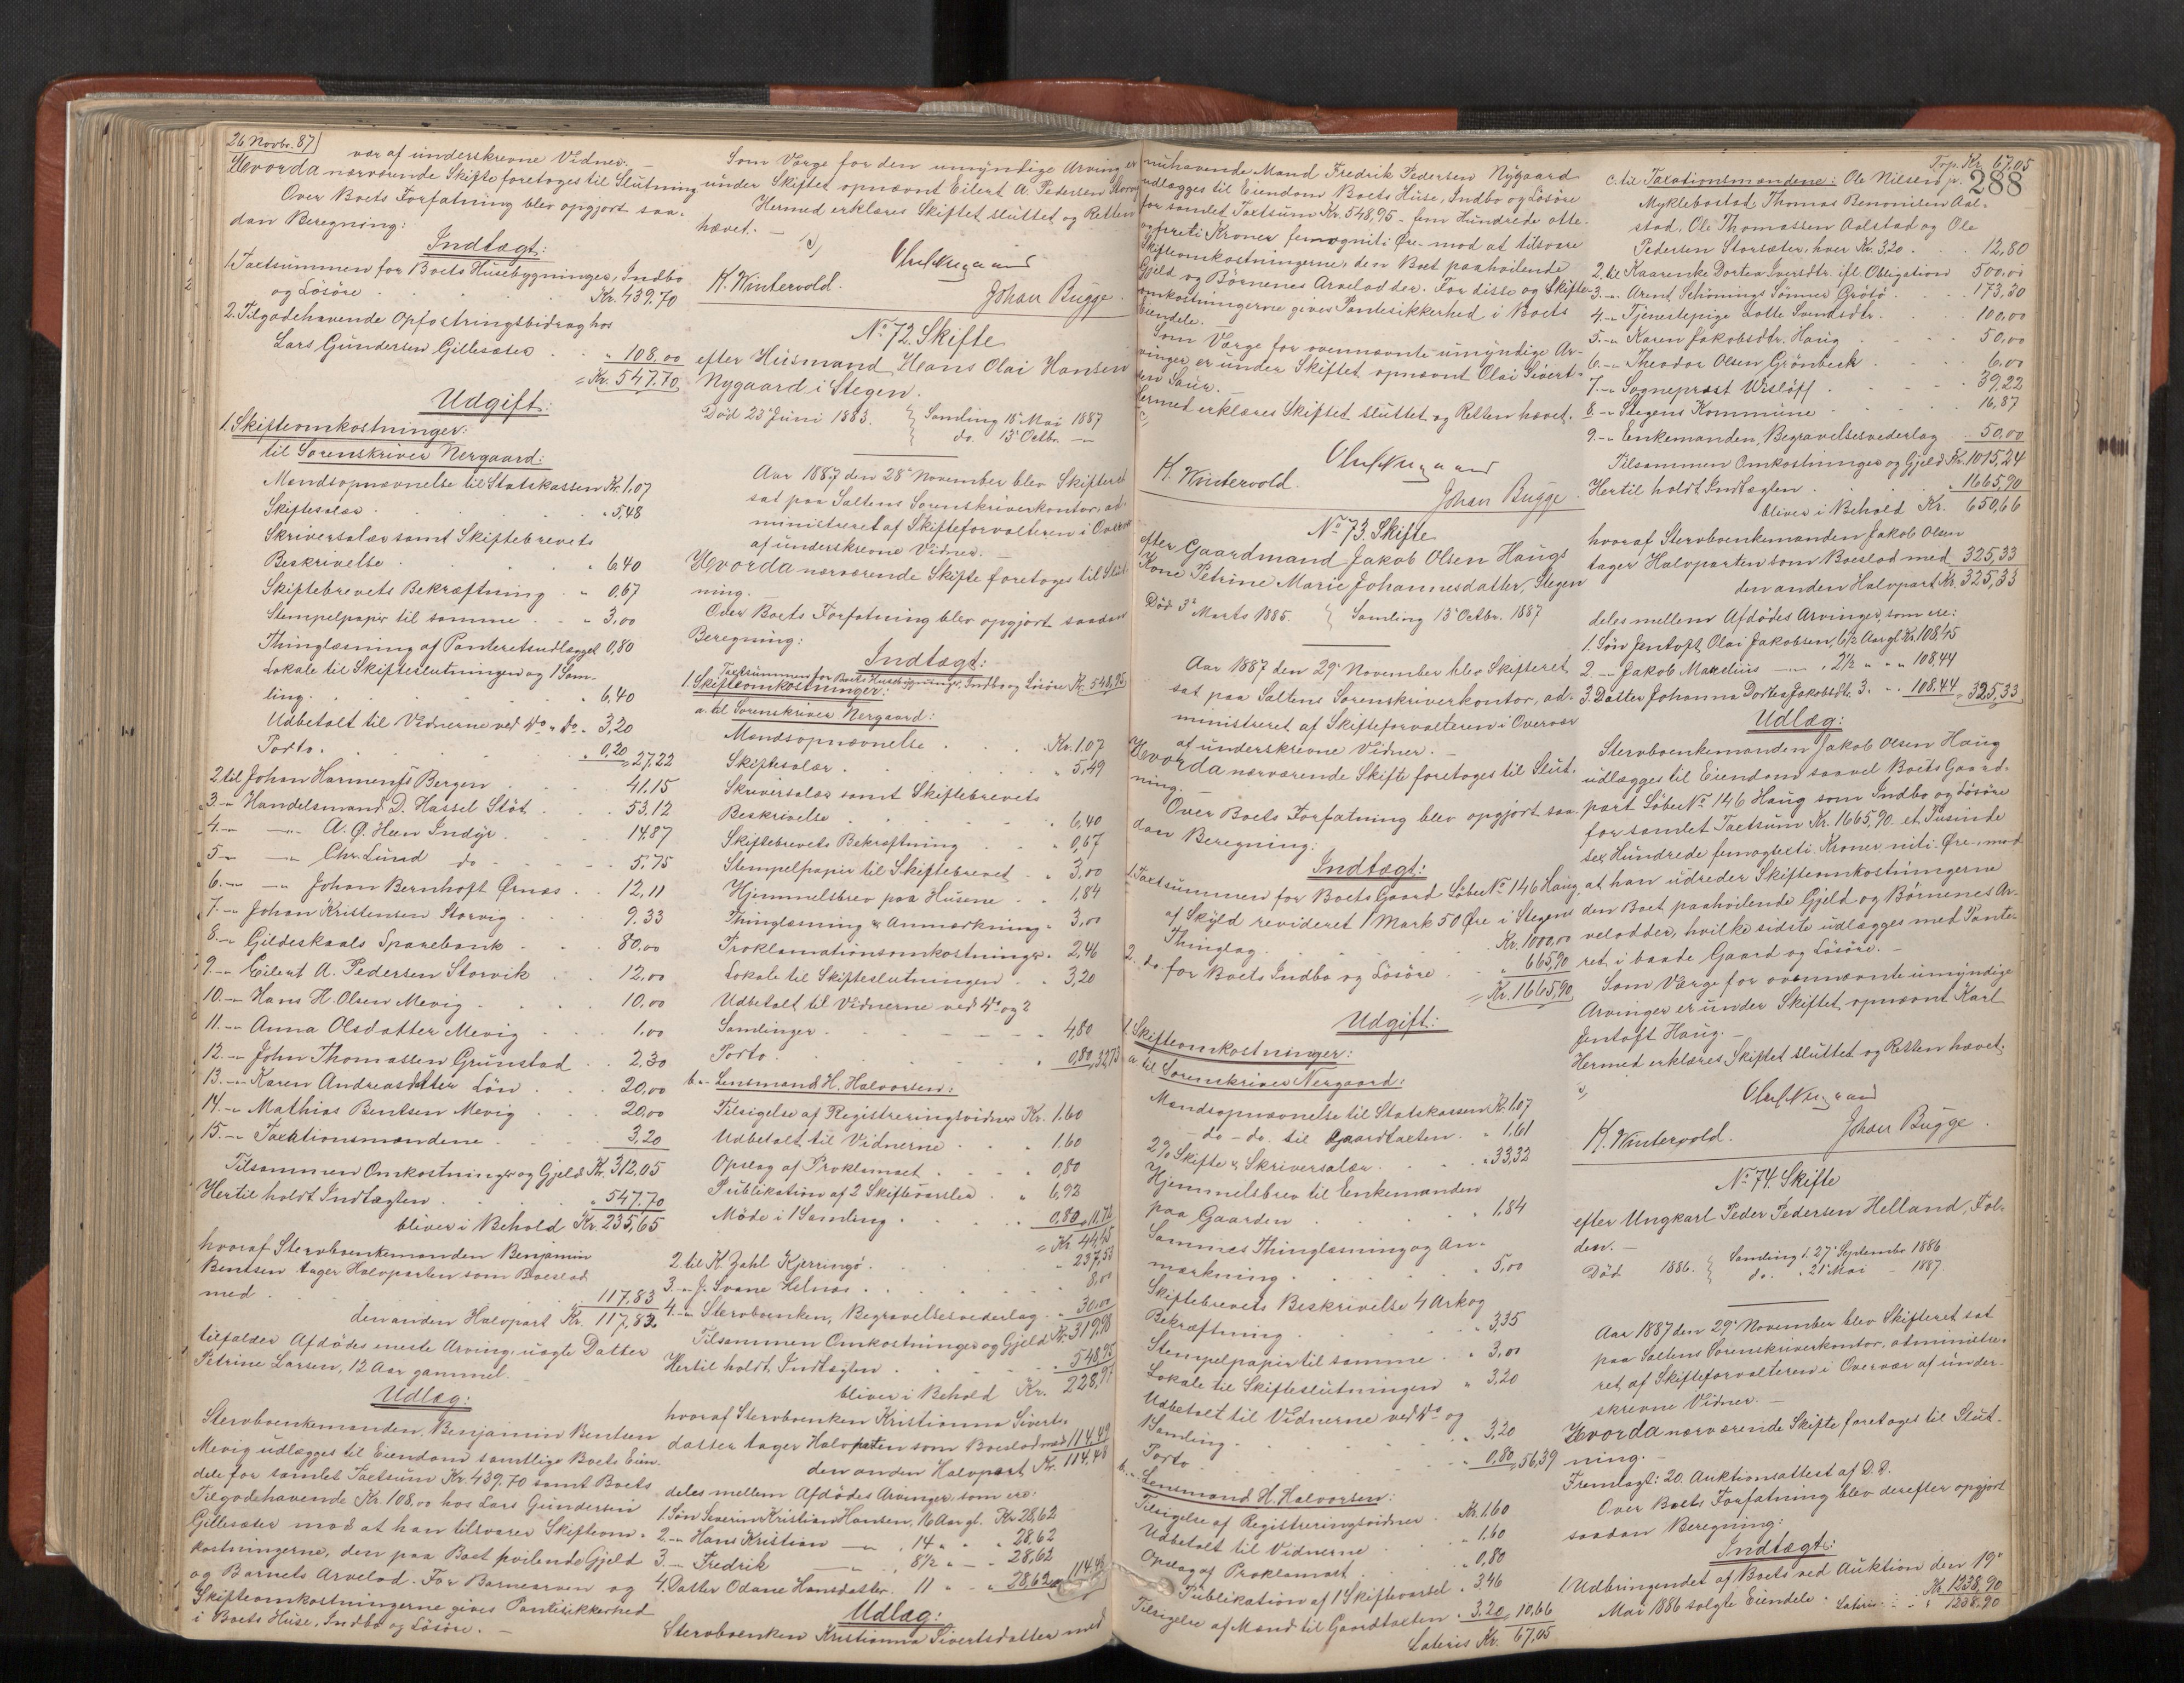 26 Novbr. 87
vær af underskrevne Vidner. –
Hvorda nærværende Skifte foretoges til Slutning
Over Boets Forfatning blev opgjort saa-
dan Beregning:
Indtægt:
1. Taxtsummen for Boets Husebygninger, Indbo
og Løsøre . . . Kr. 439.70
2. Tilgodehavende Opfostringsbidrag hos
Lars Gundersen Gillesæter . . " 108,00
= Kr. 547.70
Udgift:
1. Skifteomkostninger:
til Sorenskriver Nergaard:
Mændsopnævnelse til Statskassen Kr. 1.07
Skiftesalær . . " 5,48
Skriversalær samt Skiftebrevets
Beskrivelse . . " 6,40
Skiftebrevets Bekræftning . " 0,67
Stempelpapir til samme . . " 3,00
Thinglæsning af Panteretsudlægget 0,80
Lokale til Skifteslutningen og 1 Sam-
ling . . " 6,40
Udbetalt til Vidnerne ved do " do " 3,20
Porto . . " 0,20 = 27,22
2. til Johan Harmens Bergen 41.15
3. -"- Handelsmand D. Hassel Støt . . 53.12
4. -"- -"- A. Ø. Heen Indyr . . 14.87
5 -"- -"- Chr. Lund do . . 5.75
6. -"- -"- Johan Bernhoft Ørnæs . . 12,11
7. -"- Johan Kristensen Storvig . . 9.33
8. -"- Gildeskaals Sparebank . . 80,00
9. -"- Eilert A. Pedersen Storvik . . 12,00
10. -"- Hans H. Olsen Mevig . . 10,00
11. -"- Anna Olsdatter Mevig . . 1.00
12. -"- John Thomassen Grimstad . . 2,30
13. -"- Karen Andreasdatter Løn . . 20,00
14. -"- Mathias Bentsen Mevig . . 20,00
15. -"- Taxtionsmændene . . 3,20
Tilsammen Omkostninger og Gjeld Kr. 312,05
Hertil holdt Indtægten . . " 547.70
bliver i Behold Kr. 235,65
hvoraf Stervboenkemanden Benjamin
Bentsen tager Halvparten som Boeslod
med . . 117,83
den anden Halvpart Kr. 117,82
tilfalder Afdødes eneste Arving, uægte Datter
Petrine Larsen, 12 Aar gammel.
Udlæg:
Stervboenkemanden, Benjamin Bentsen
Mevig udlægges til Eiendom samtlige Boets Eien-
dele for samlet Taxtsum Kr. 439.70 samt Boets
Tilgodehavende Kr. 108,00 hos Lars Gundersen
Gillesæter mod at han tilsvarer Skifteom-
kostningerne, den paa Boet hvilende Gjeld
og Barnets Arvelod. For Barnearven og
Skifteomkostningerne gives Pantesikkerhed
i Boets Huse, Indbo og Løsøre. –
Som Værge for den umyndige Arving er
under Skiftet opnævnt Eilert A. Pedersen Storvig
Hermed erklæres Skiftet sluttet og Retten
hævet. –
K. Wintervold.
Johan Bugge.
No 72. Skifte
efter Husmand Hans Olai Hansen
Nygaard i Stegen.
Død 23 Juni 1883. } Samling 18 Mai 1887
do. 13 Octbr. -"-
Aar 1887 den 28 November blev Skifteret
sat paa Saltens Sorenskriverkontor, ad-
ministreret af Skifteforvalteren i Overvær
af underskrevne Vidner. –
Hvorda nærværende Skifte foretoges til Slut-
ning. –
Over Boets Forfatning blev opgjort saadan
Beregning:
Indtægt:
Taxtsummen for Boets Husebygninger, Indbo og Løsøre Kr. 548,95
1. Skifteomkostninger:
a. til Sorenskriver Nergaard:
Mændsopnævnelse . . Kr. 1.07
Skiftesalær . . " 5,49
Skriversalær samt Skiftebrevets
Beskrivelse . . " 6,40
Skiftebrevets Bekræftning . . " 0,67
Stempelpapir til Skiftebrevet . " 3,00
Hjemmelsbrev paa Husene . . 1,84
Thinglæsning & Anmærkning . 3,00
Proklamationsomkostninger . 2,46
Lokale til Skifteslutningen . . 3,20
Udbetalt til Vidnerne ved do og 2
Samlinger . . 4,80
Porto . . " 0,80, 32,73
b. -"- Lensmand H. Halvorsen:
Tilsigelse af Registreringsvidner Kr. 1.60
Udbetalt til Vidnerne . . " 1.60
Opslag af Proklamaet . . " 0,80
Publikation af 2 Skiftevarsler . " 6,92
Møde i 1 Samling . . 0,80 = 11,72
= Kr. 44,45
2 til K. Zahl Kjerringø . . " 237,53
3. -"- J. Svane Helnæs . . 8,00
4. -"- Stervboenken, Begravelsesvederlag . . 30,00
Tilsammen Omkostninger og Gjeld Kr. 319,98
Hertil holdt Indtægten . . " 548,95
bliver i Behold Kr. 228,97
hvoraf Stervboenken Kristianna Siverts-
datter tager Halvparten som Boeslod med 114,49
den anden Halvpart Kr. 114,48
deles mellem Afdødes Arvinger, som ere:
1. Søn Severin Kristian Hansen, 16 Aar gl. Kr. 28,62
2. -"- Hans Kristian -"- , 14 " " " 28,62
3. -"- Fredrik -"- , 8½ " – " 28,62
4. Datter Odane Hansdatter. 11 " " " 28,62 = 114,48
Udlæg:
Stervboenken Kristianna Sivertsdatter med
nuhavende Mand Fredrik Pedersen Nygaard
udlægges til Eiendom Boets Huse, Indbo og Løsøre
for samlet Taxtsum Kr. 548,95 – fem Hundrede otte
og firti Kroner femogniti Øre – mod at tilsvare
Skifteomkostningerne, den Boet paahvilende
Gjeld og Børnenes Arvelodder. For disse og Skifte-
omkostningerne gives Pantesikkerhed i Boets
Eiendele.
Som Værge for ovennævnte umyndige Ar-
vinger er under Skiftet opnævnt Olai Sivert-
sen Saur.
Hermed erklæres Skiftet sluttet og Retten hævet.
K. Wintervold.
Johan Bugge.
No 73. Skifte
efter Gaardmand Jakob Olsen Haugs
Kone Petrine Marie Johannesdatter, Stegen
Død 3 Marts 1885. } Samling 13 Octbr. 1887
Aar 1887 den 29 November blev Skifteret
sat paa Saltens Sorenskriverkontor, ad-
ministreret af Skifteforvalteren i Overvær
af underskrevne Vidner. –
Hvorda nærværende Skifte foretoges til Slut-
ning.
Over Boets Forfatning blev opgjort saa-
dan Beregning:
Indtægt:
1. Taxtsummen for Boets Gaard Løbe No 146 Haug,
af Skyld revideret 1 Mark 50 Øre i Stegens
Thinglag . . Kr. 1000,00
2. do for Boets Indbo og Løsøre . . " 665,90
= Kr. 1665,90
Udgift:
1. Skifteomkostninger:
a. til Sorenskriver Nergaard:
Mændsopnævnelse til Statskassen K. 1,07
– do – do. til Gaardtaxten . " 1,61
2% Skifte & Skriversalær . . " 33,32
Hjemmelsbrev til Enkemanden
paa Gaarden . . " 1,84
Sammes Thinglæsning og An-
mærkning . . " 5,00
Skiftebrevets Beskrivelse 4 Ark og
Bekræftning . . " 3,35
Stempelpapir til samme . . " 3,00
Lokale til Skifteslutningen " 3,20
Udbetalt til Vidnerne ved do og
1 Samling . . " 3,20
Porto . . " 0,80 = 56,39
b. -"- Lensmand H. Halvorsen:
Tilsigelse af Registreringsvidner . Kr. 1.60
Udbetalt til Vidnerne . . " 1.60
Opslag af Proklamaet . . " 0,80
Publikation af 1 Skiftevarsel . 3,46
Tilsigelse af Mænd til Gaardtaxten . 3.20, 10,66
Lateris Kr. 67,05
Trp. Kr. 67,05
288
c. til Taxationsmændene: Ole Nilsen p.
Myklebostad, Thomas Benonisen Aal-
stad, Ole Thomassen Aalstad og Ole
Pedersen Storsæter, hver Kr. 3,20 . . 12,80
2. til Kaarenke Dortea Iversdtr. ifl. Obligation 500,00
3. -"- Arent Schønings Sønner Grøtø . . 173,30
4. -"- Tjenestepige Lotte Svendsdtr. . . 100,00
5. -"- Karen Jakobsdtr. Haug . . 50,00
6. -"- Theodor Olsen Grønbeck . . 6,00
7. -"- Sogneprest Wisløff . . 39,22
8. -"- Stegens Kommune . . 16,87
9. -"- Enkemanden, Begravelsesvederlag . 50,00
Tilsammen Omkostninger og Gjeld Kr. 1015,24
Hertil holdt Indtægten . . " 1665,90
bliver i Behold Kr. 650,66
hvoraf Stervboenkemanden Jakob Olsen
tager Halvparten som Boeslod med 325,33
den anden Halvpart Kr. 325,33
deles mellem Afdødes Arvinger, som ere:
1. Søn Jentoft Olai Jakobsen, 6½ Aar gl. Kr. 108,45
2. -"- Jakob Marelius -"- , 2½ " " " 108,44
3. Datter Johanna Dortea Jakobsdtr. 3. " " 108,44 = 325,33
Udlæg:
Stervboenkemanden Jakob Olsen Haug
udlægges til Eiendom saavel Boets Gaard-
part Løbe No 146 Haug som Indbo og Løsøre
for samlet Taxtsum Kr. 1665,90 et Tusinde
sex Hundrede femogsexti Kroner niti Øre, mod
at han udreder Skifteomkostningerne
den Boet paahvilende Gjeld og Børnenes Ar-
velodder, hvilke sidste udlægges med Pante-
ret i baade Gaard og Løsøre. –
Som Værge for ovennævnte umyndige
Arvinger er under Skiftet opnævnt Karl
Jentoft Haug. –
Hermed erklæres Skiftet sluttet og Retten hævet.
K. Wintervold.
Johan Bugge.
No 74. Skifte
efter Ungkarl Peder Pedersen Helland, Fol-
den. –
Død 1886. } Samling 1. 27 Septembr 1886
do. " 21 Mai – 1887.
Aar 1887 den 29 November blev Skifteret sat
paa Saltens Sorenskriverkontor, administre-
ret af Skifteforvalteren i Overvær af under-
skrevne Vidner. –
Hvorda nærværende Skifte foretoges til Slut-
ning. –
Fremlagt: 20. Auktionsattest af D.D.
Over Boets Forfatning blev derefter opgjort
saadan Beregning:
Indtægt:
1. Udbringendet af Boets ved Auktion den 19
Mai 1886 solgte Eiendele . Kr. 1238,90
Lateris . . " 1238.90